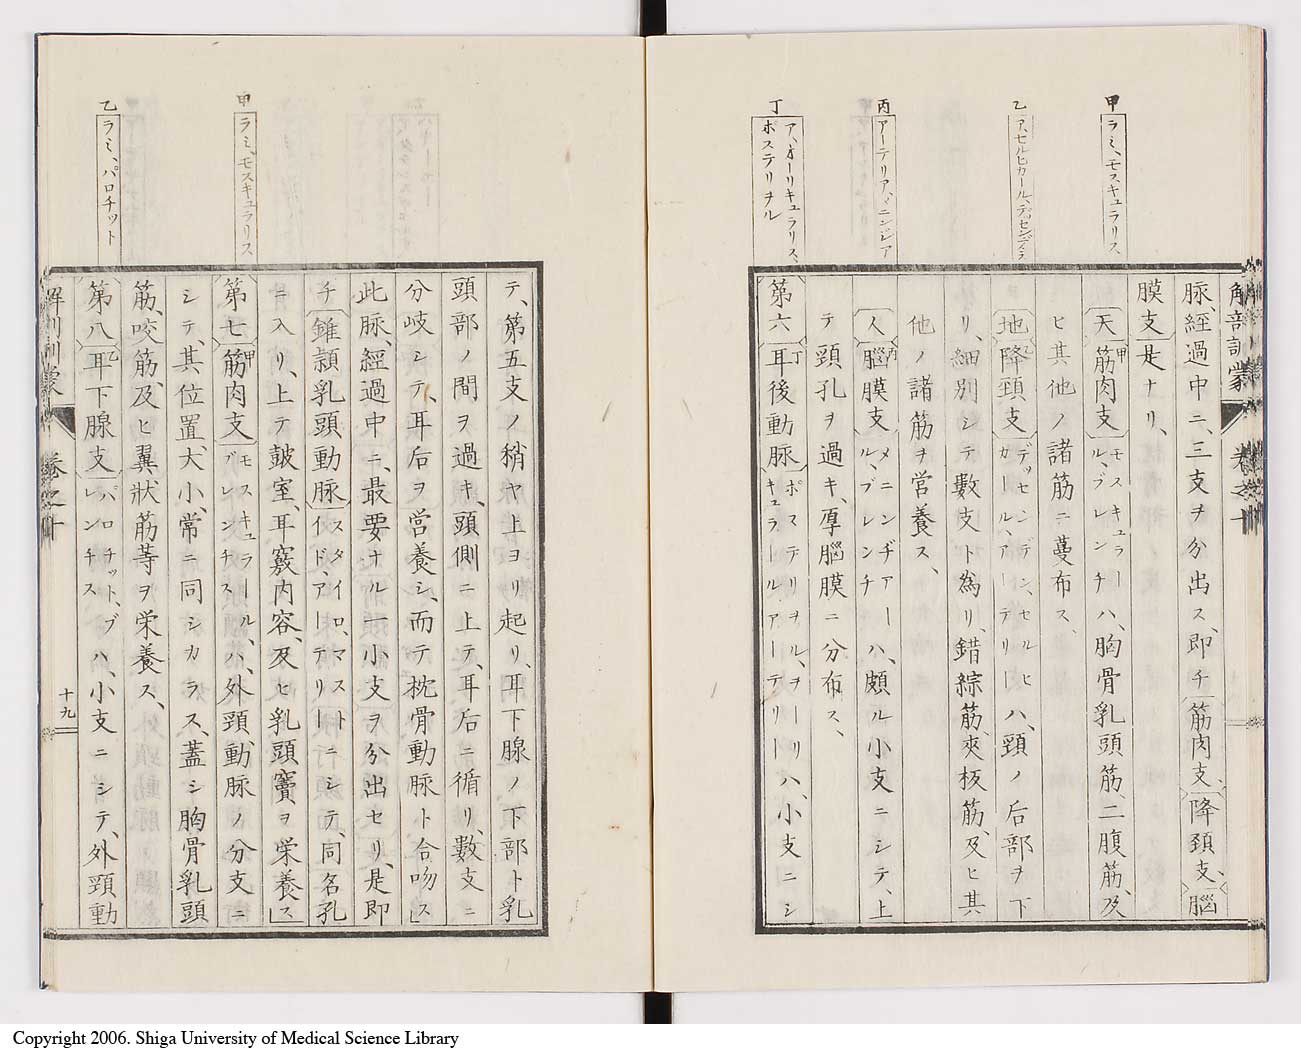 甲 ラミ、モスキュラリス
乙 ア、セルヒカール、ディセンデンラ
丙 アーテリア、メニンジア
丁 ア、オーリキュラリス、
ホステリヲル
解剖訓蒙 卷之十
脉經過中ニ、三支ヲ分出ス、即チ筋肉支、降頸支、腦
膜支是ナリ、
天筋肉支 甲 モスキュラールブレンチ ハ、胸骨乳頭筋、二腹筋、及
ヒ其他ノ諸筋ニ蔓布ス、
地降頸支 乙 デッセンデン、セルヒカール、アーテリー ハ、頸ノ后部ヲ下
リ、細別シテ數支ト為リ、錯綜筋、夾板筋、及ヒ其
他ノ諸筋ヲ営養ス、
人腦膜支 丙 メニンヂアール、ブレンチ ハ、頗ル小支ニシテ、上
テ頸孔ヲ過キ、厚腦膜ニ分布ス、
第六耳後動脉 丁 ポステリヲル、ヲーリキュラールアーテリー ハ、小支ニシ
甲 ラミ、モスキュラリス
乙 ラミ、パロチット
テ、第五支ノ稍ヤ上ヨリ起リ、耳下腺ノ下部ト乳
頭部ノ間ヲ過キ、頭側ニ上テ、耳后ニ循リ、數支ニ
分岐シテ、耳后ヲ営養シ、而テ枕骨動脉ト合吻ス」
此脉、經過中ニ、最要ナル一小支ヲ分出セリ、是即
チ錐頷乳頭動脉 スタイロ、マストイド、アーテリー ニシテ、同名孔
ニ入リ、上テ鼓室、耳竅内容、及ヒ乳頭竇ヲ栄養ス」
第七筋肉支 甲 モスキュラル、ブレンチス ハ、外頸動脉ノ分支ニ
シテ、其位置、大小、常ニ同シカラス、蓋シ胸骨乳頭
筋、咬筋、及ヒ翼狀筋等ヲ栄養ス、
第八耳下腺支 乙 パロチット、ブレンチス ハ、小支ニシテ、外頸動
解剖訓蒙 卷之十 十九
Copyright 2006. Shiga University of Medical Science Library